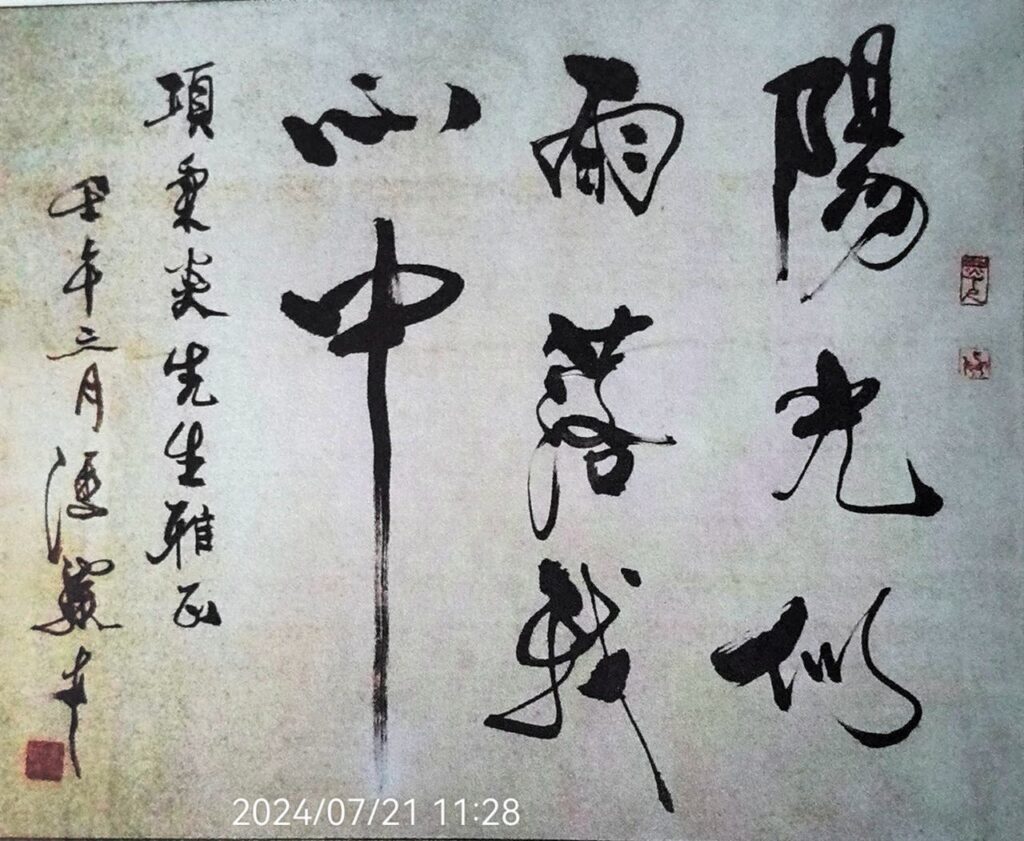 陽光似
雨落我
心中
項秉炎先生雅正
壬午三月
2024/07/21 11:28